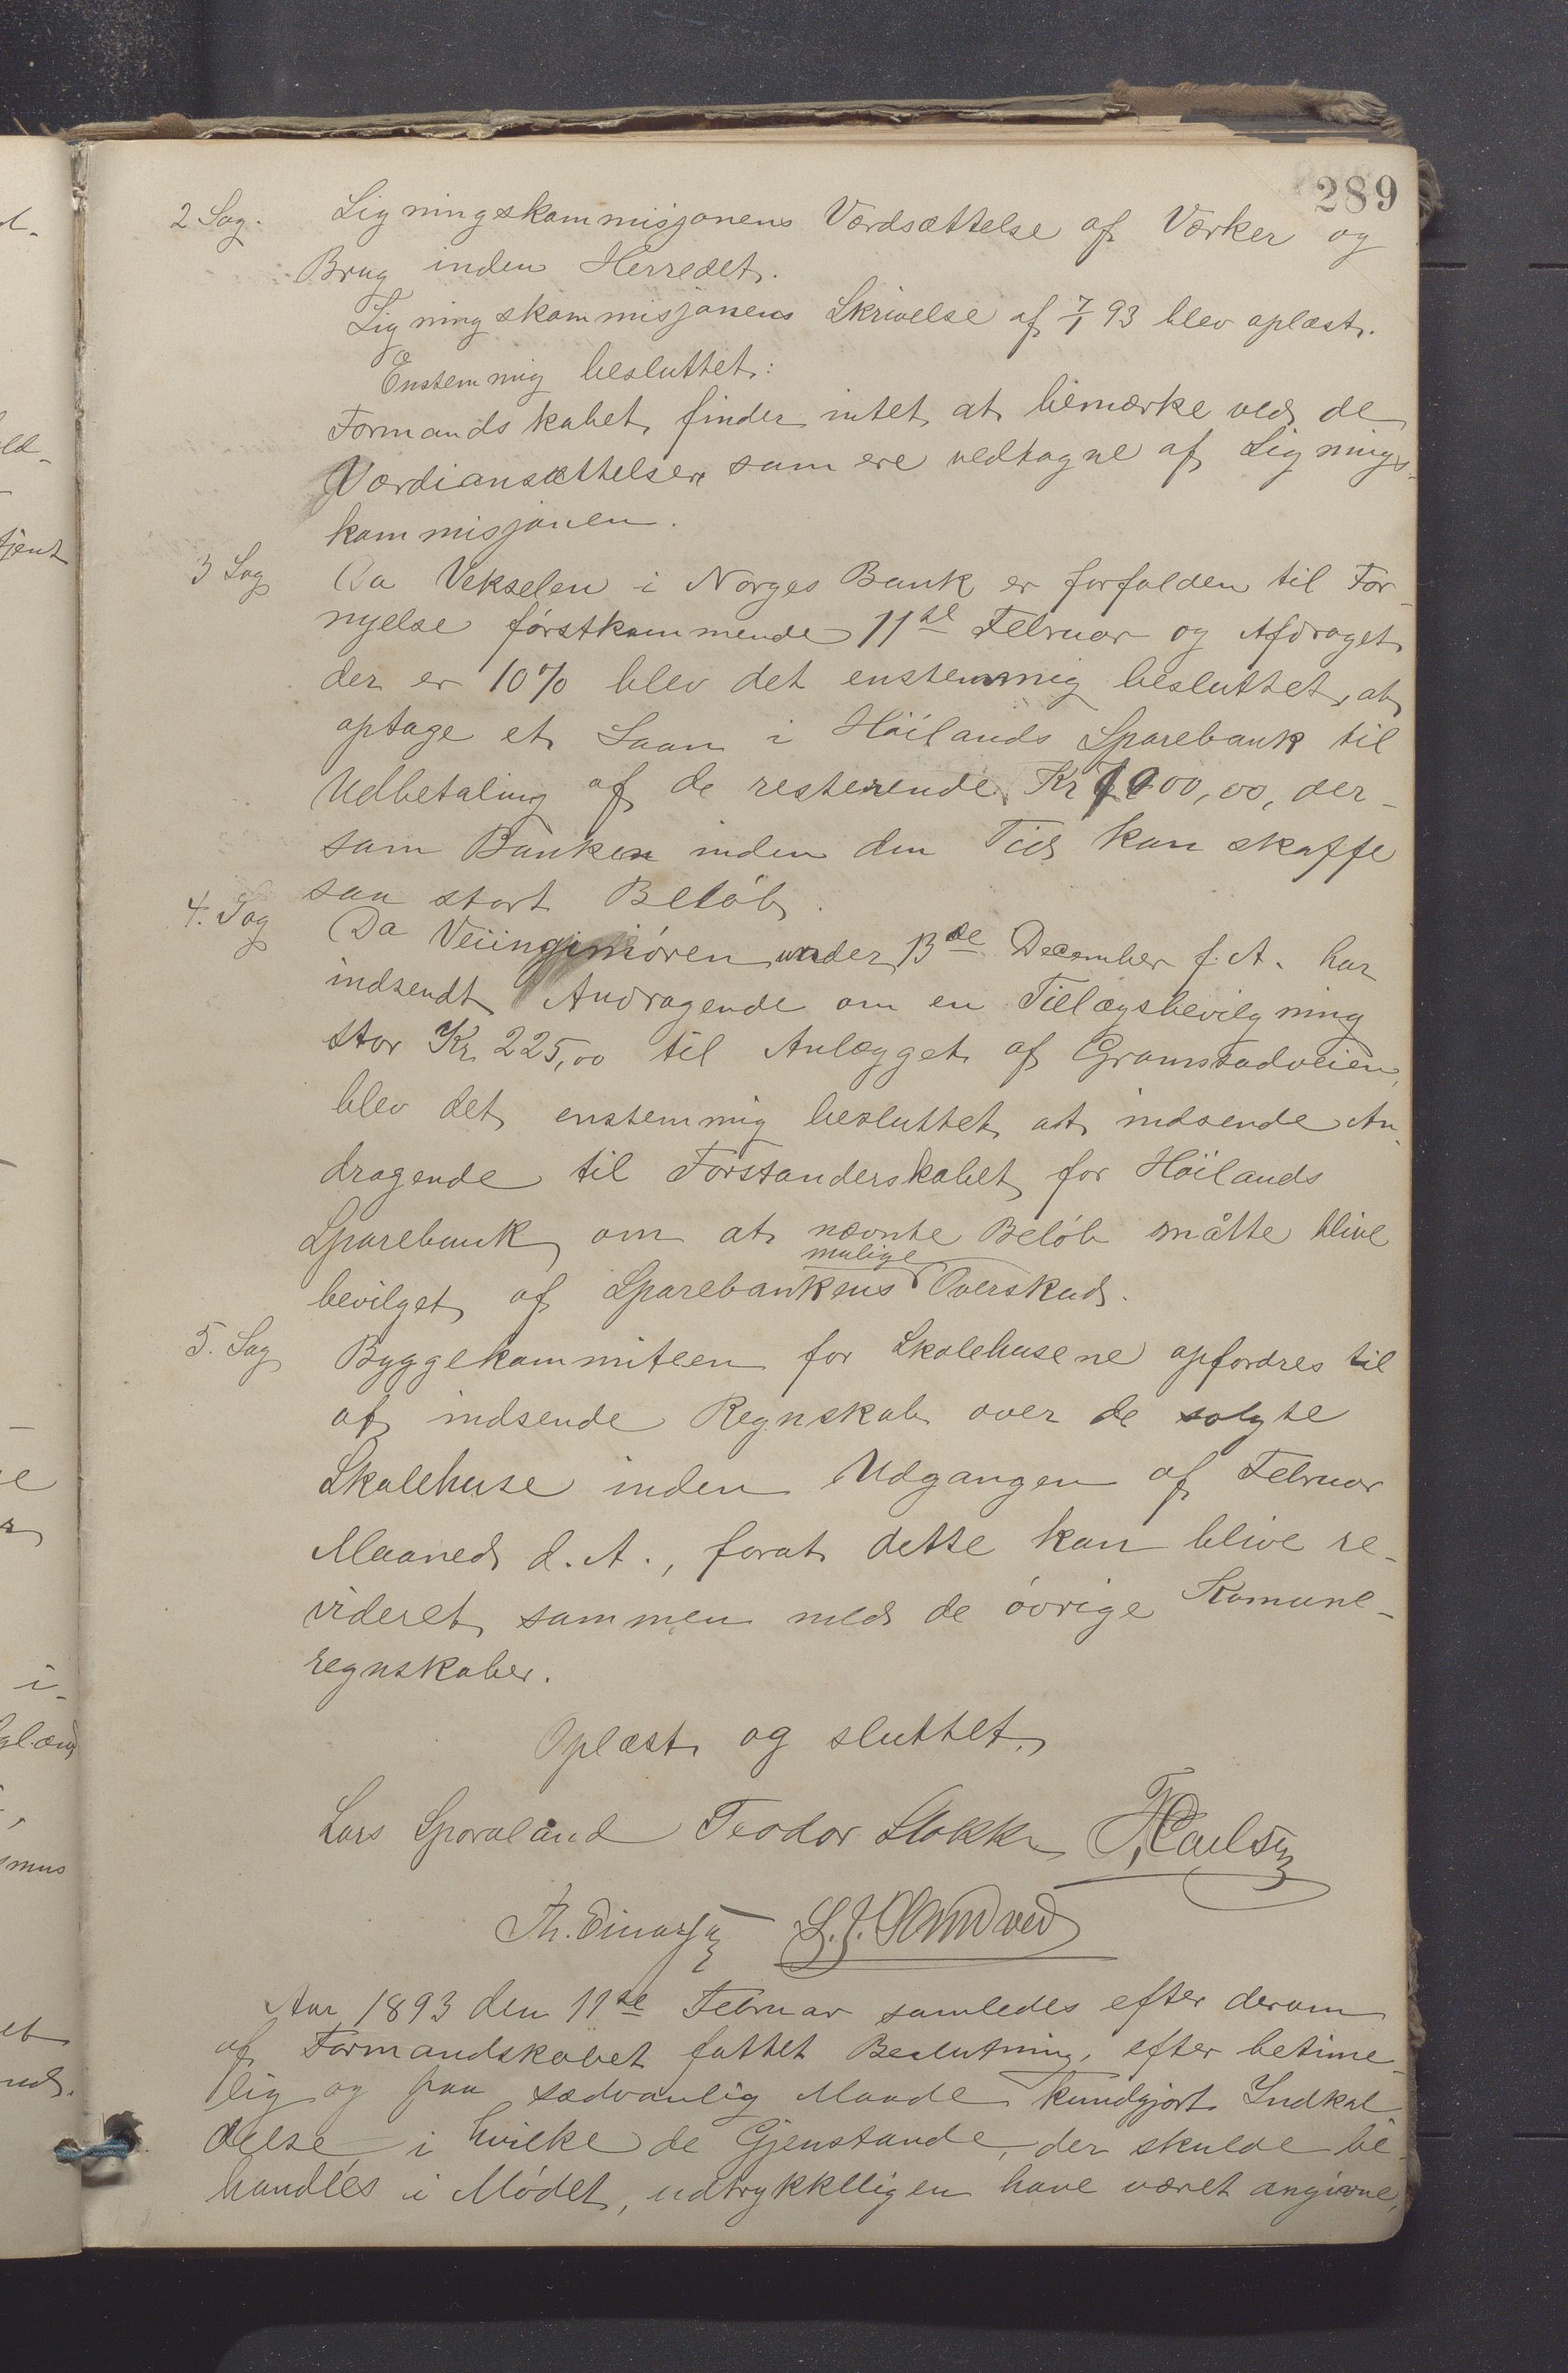 289
2 Sag. Ligningskommisjonens Værdsættelse af Værker og
Brug inden Herredet.
Ligningskommisjonens Skrivelse af 7/1 93 blev oplæst.
Enstemmig besluttet:
Formandskabet finder intet at bemærke ved de
Værdiansættelser som ere vedtagne af Lignings-
kommisjonen.
3 Sag Da Vekselen i Norges Bank er forfalden til For-
nyelse förstkommende 11te Februar og Afdraget
der er 10% blev det enstemmig besluttet, at
optage et Laan i Höilands Sparebank til
Udbetaling af de resterende Kr 00,00, der-
som Banken inden den Tid kan skaffe
saa stort Belöb.
4. Sag Da Veiingeniören under 13de December f. A. har
indsendt Andragende om en Tillægsbevilgning
stor Kr. 225,00 til Anlægget af Gramstadveien,
blev det enstemmig besluttet at indsende An-
dragende til Forstanderskabet for Höilands
Sparebank om at nævnte Belöb måtte blive
mulige
bevilget af Sparebankens Overskud.
5. Sag Byggekommiteen for Skolehusene opfordres til
at indsende Regnskab over de solgte
Skolehuse inden Udgangen af Februar
Maaned d. A., forat dette kan blive re-
videret sammen med de övrige Komune-
regnskaber.
Oplæst og sluttet.
Lars Sporaland Teodor Stokke T. Paulsen
Th. Einarsen
Aar 1893 den 11te Februar samledes efter derom
af Formandskabet fattet Beslutning, efter betime-
lig og paa sædvanlig Maade kundgjort Indkal-
delse i hvilke de Gjenstande, der skulde be-
handles i Mödet, udtrykkelligen have været angivne,